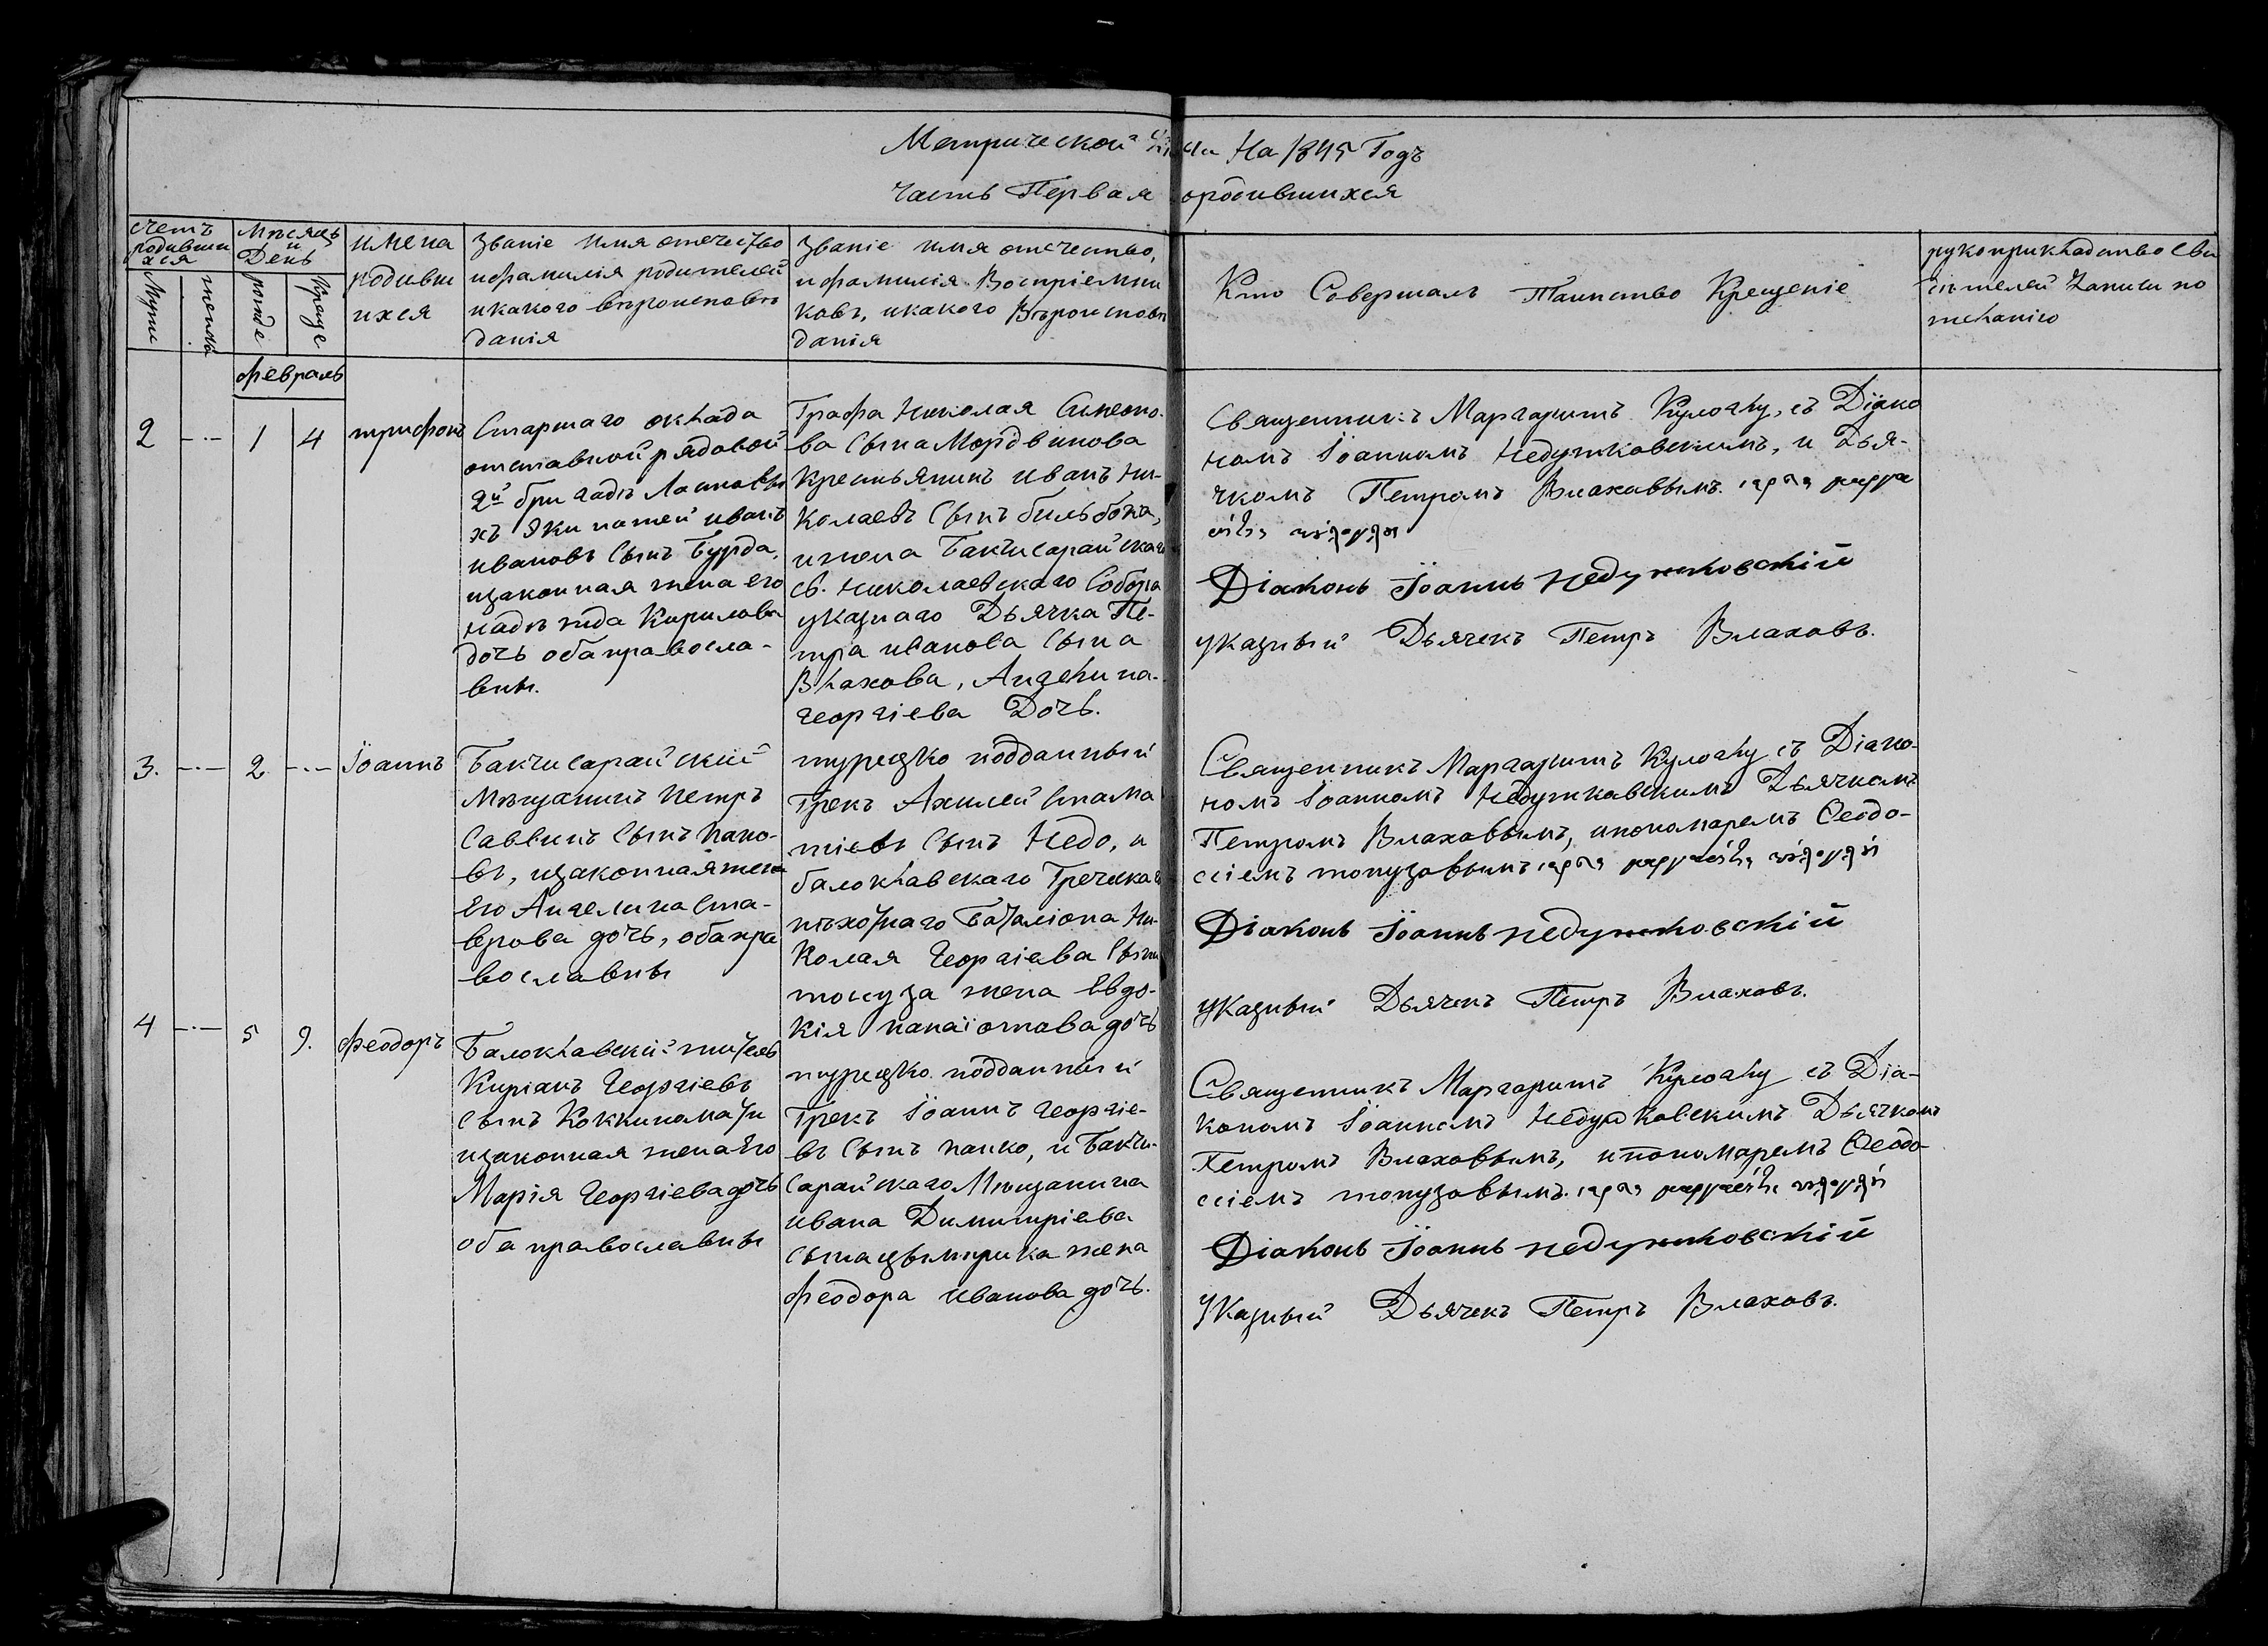 Метрической Книги На 1845 Годъ
Часть Первая ородившихся
Счетъ родивши хся
Мужи
женска
Мѣсяцъ и День
рожде
Креще
имена родивши ихся
Званіе имя отечество
ифамилія родителей
икакого вѣроисповѣ
данія
Званіе имя отечество,
ифамилія Воспріемни
ковъ, икакого Вѣроисповѣ
данія
Кто Совершалъ Таинство Крещеніе
рукоприкладство сви
дѣтелей записи по
желанію
февраль
2 -·- 1 4 трифонъ
Старшаго оклада
отставной рядовой
2й бригадъ
хъ Экипажей иванъ
ивановъ Сынъ Бурда,
изаконная жена его
надѣжда Кирилова
дочь оба правосла-
вны.
Графа Николая Симеоно-
ва Сына Мордвинова
Крестьянинъ иванъ Ни-
колаевъ Сынъ бильбока,
ижена Бакчисарайскаго
св. Николаевскаго Собора
указнаго Дьячка Пе-
тра иванова Сына
Влахова, Ангелина-
георгіева Дочь.
Священникъ Маргаритъ Кулоглу, съ Діако
номъ Іоанномъ Недужковскимъ, и Дья-
чкомъ Петромъ Влаховымъ.
Діаконъ Іоаннъ недужковскій
указный Дьячекъ Петръ Влаховъ.
3. -·- 2 -·- Іоаннъ
Бакчисарайскій
Мѣщанинъ Петръ
Саввинъ Сынъ пано-
въ, изаконная жена
Его Ангелина ста-
врова дочь, оба пра
вославны
турецко подданный
Грекъ Ахилей стама
тіевъ Сынъ Недо, и
балоклавскаго Греческаго
пѣхотнаго Баталіона Ни-
колая Георгіева Сына
топуза жена Евдо-
кія панаіотова дочь
Священникъ Маргаритъ Кулоглу съ Діако-
номъ Іоанномъ Недужковскимъ Дьячкомъ
Петромъ Влаховымъ, ипономаремъ Ѳеодо-
сіемъ топузовымъ
Діаконъ Іоаннъ недужковскій
указный Дьячекъ Петръ Влаховъ.
4 -·- 5 9. феодоръ
Балоклавскій житель
Киріакъ Георгіевъ
Сынъ Коккинаматы
изаконная жена Его
Марія Георгіева дочь
оба православны
турецко подданный
Грекъ Іоаннъ георгіе-
въ Сынъ панко, и Бакчи-
сарайскаго Мѣщанина
ивана Димитріева
сына жена
феодора иванова дочь.
Священникъ Маргаритъ Кулоглу съ Діа-
кономъ Іоанномъ Недужковскимъ Дьячкомъ
Петромъ Влаховымъ, ипономаремъ Ѳеодо-
сіемъ топузовымъ.
Діаконъ Іоаннъ недужковскій
указный Дьячекъ Петръ Влаховъ.